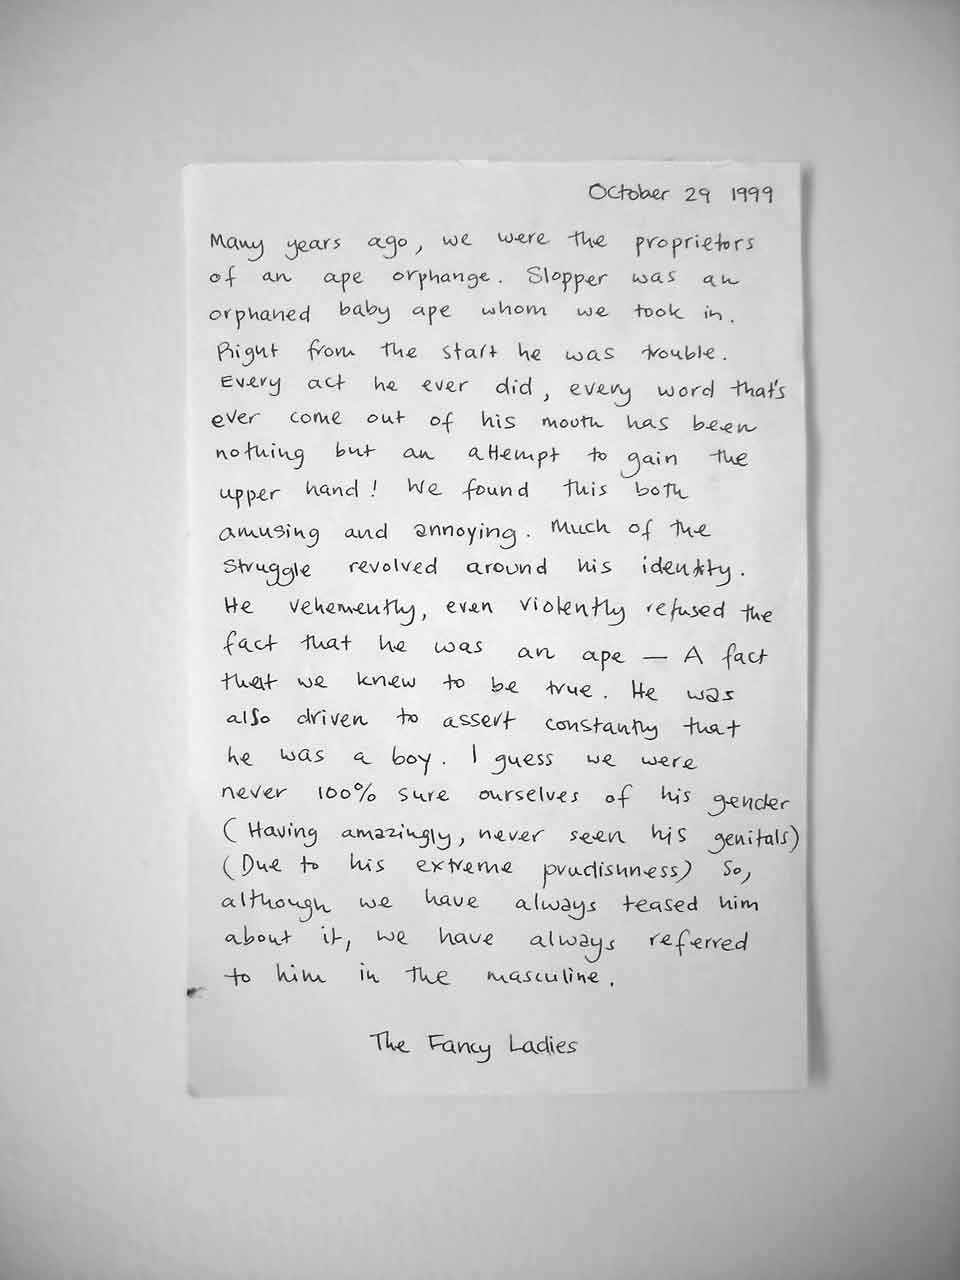 October 29 1999
Many years ago, we were the proprietors
of an ape orphange. Slopper was an
orphaned baby ape whom we took in.
Right from the start he was trouble.
Every act he ever did, every word that's
ever come out of his mouth has been
nothing but an attempt to gain the
upper hand! We found this both
amusing and annoying. Much of the
struggle revolved around his identity.
He vehemently, even violently refused the
fact that he was an ape — A fact
that we knew to be true. He was
also driven to assert constantly that
he was a boy. I guess we were
never 100% sure ourselves of his gender
(Having amazingly, never seen his genitals)
(Due to his extreme prudishness) So,
although we have always teased him
about it, we have always referred
to him in the masculine.
The Fancy Ladies